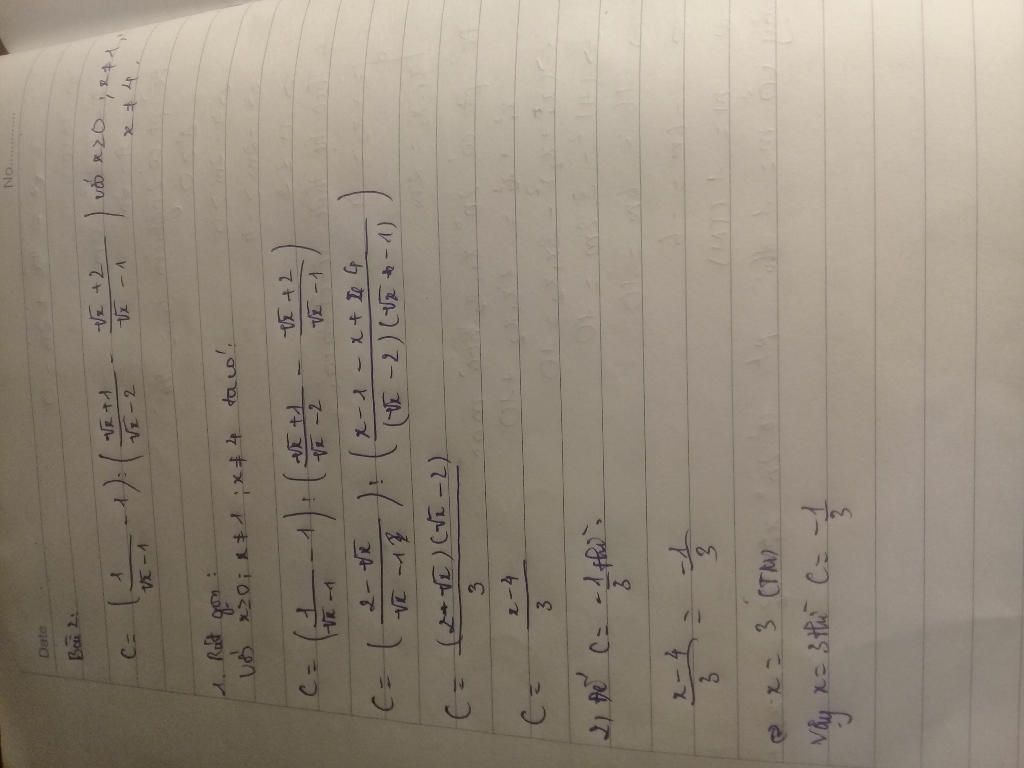 No.
Date
Bài 2:
C = (1/(√x - 1) - 1) : ((√x + 1)/(√x - 2) - (√x + 2)/(√x - 1)) với x≥0; x≠1;
x≠4.
1. Rút gọn:
Với x≥0; x≠1; x≠4 ta có:
C = (1/(√x - 1) - 1) : ((√x + 1)/(√x - 2) - (√x + 2)/(√x - 1))
C = ((2 - √x)/(√x - 1)) : ((x - 1 - x + 4)/((√x - 2)(√x - 1)))
C = ((2 - √x)(√x - 2))/3
C = (x - 4)/3
2) Để C = -1/3 thì:
(x - 4)/3 = -1/3
⇔ x = 3 (TM)
Vậy x = 3 thì C = -1/3